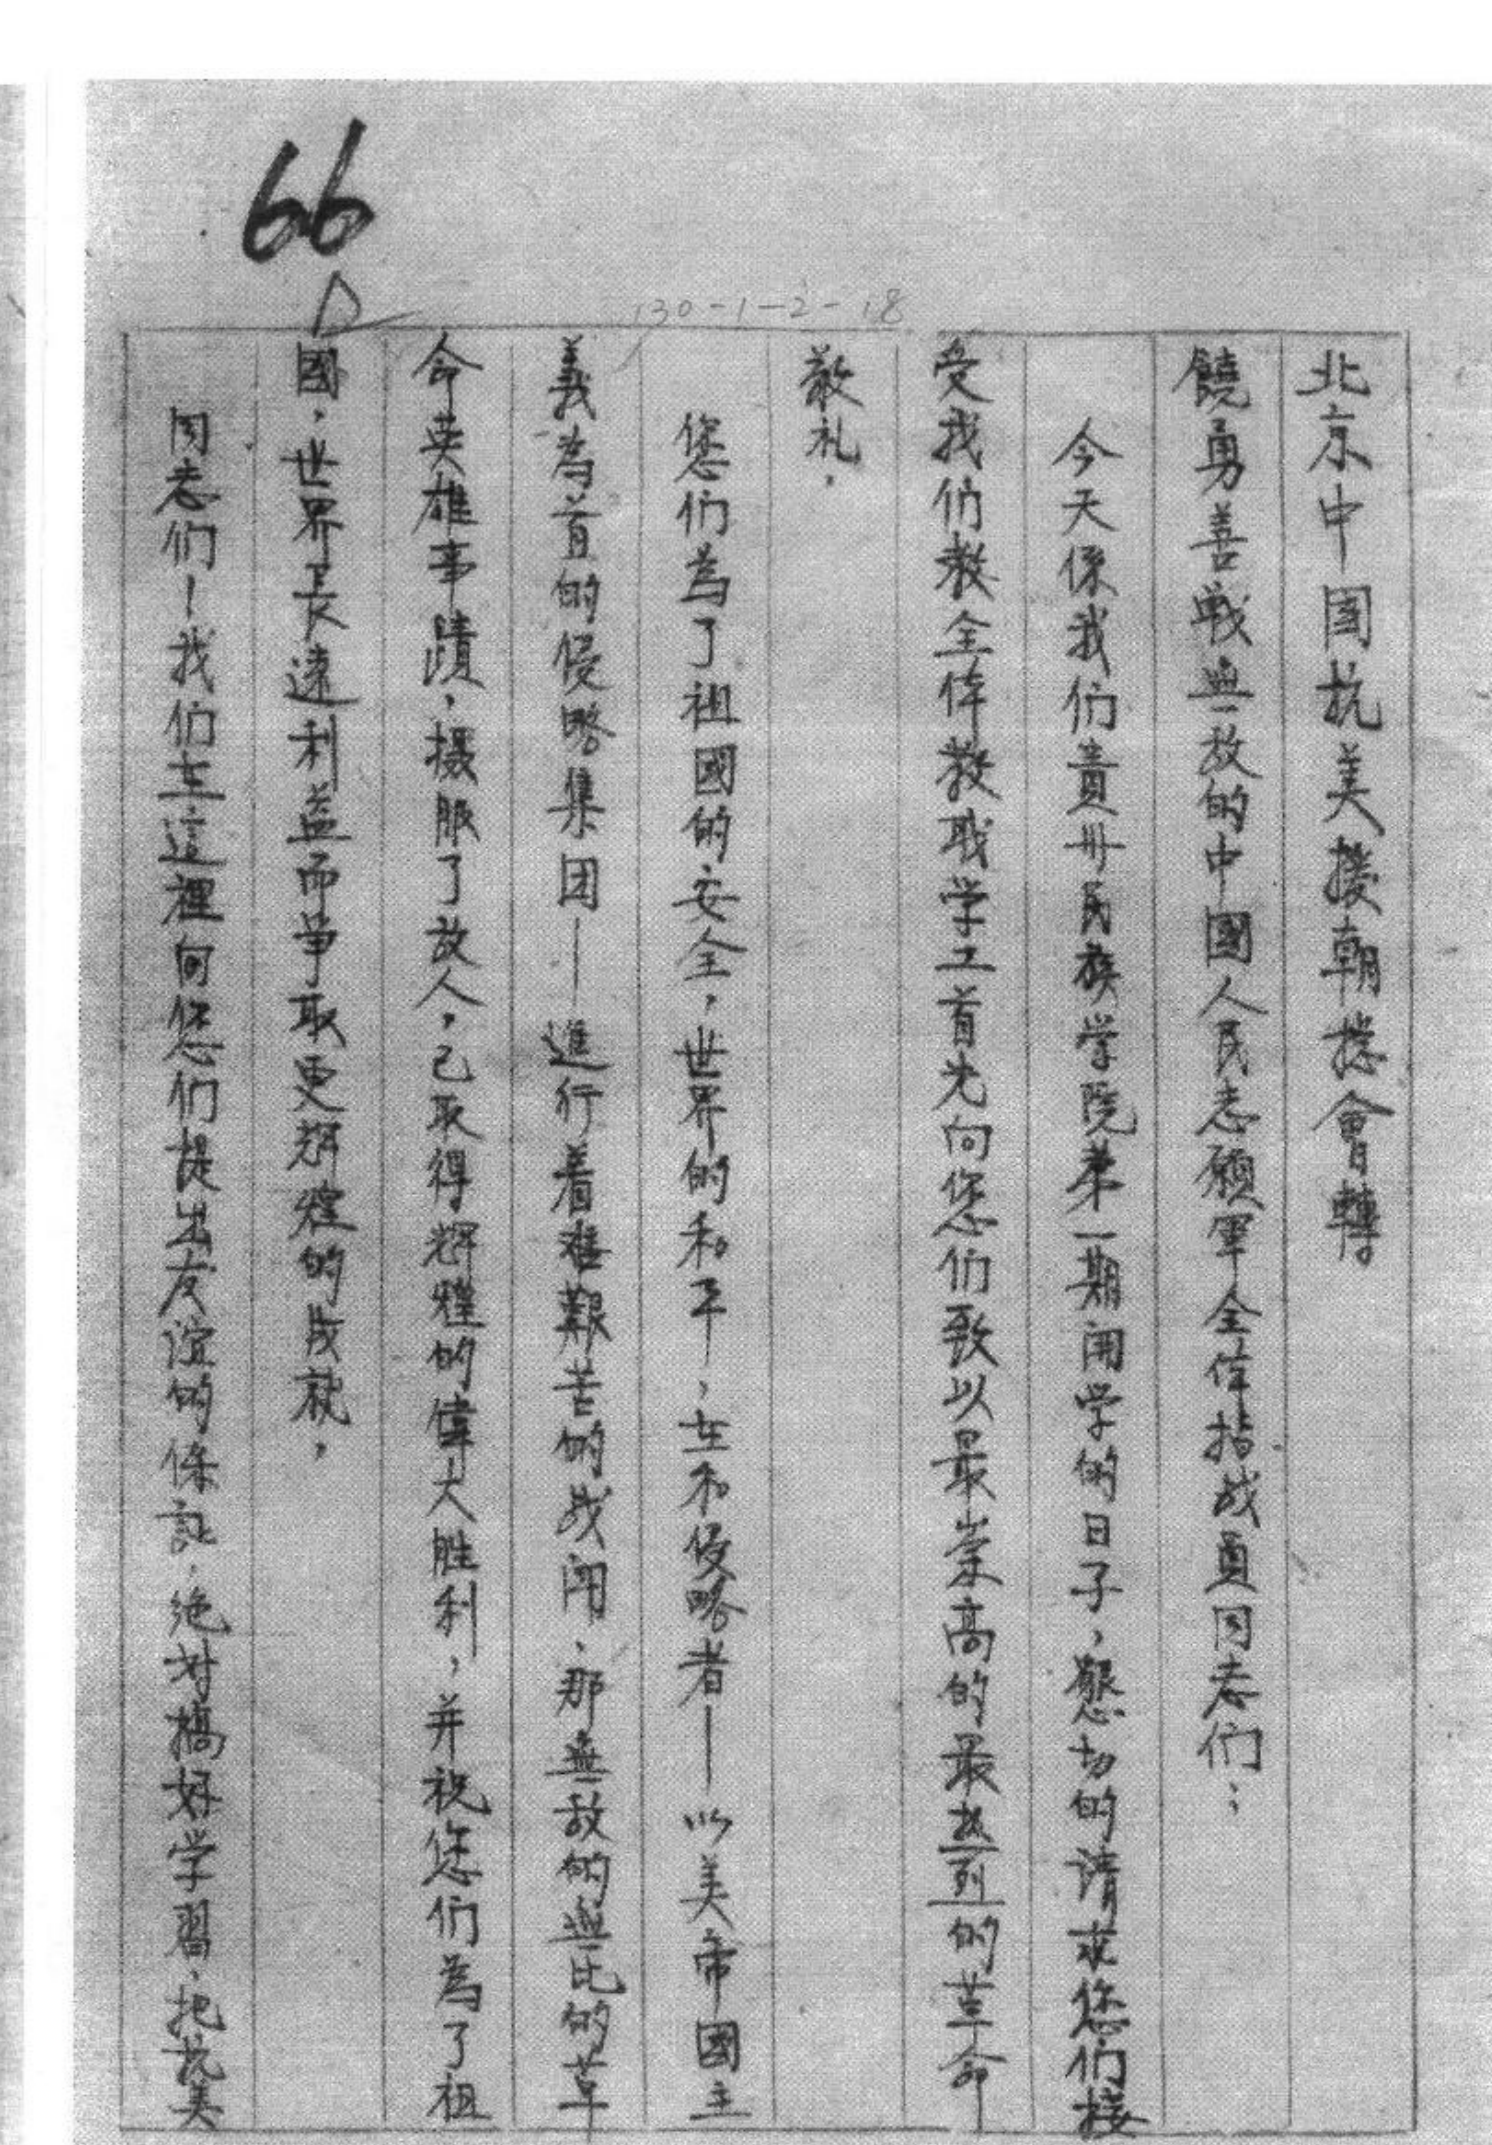 66
130-1-2-18
北京中国抗美援朝总會轉
饒勇善戦無敌的中國人民志願軍全体指战員同志们：
今天係我们貴州民族学院第一期開学的日子，懇切的请求您们接
受我们教全体教职学工首先向您们致以最崇高的最热烈的革命
敬礼，
您们為了祖國的安全，世界的和平，在和侵略者——以美帝國主
義為首的侵略集团——進行着難艱苦的战闹，那無敌的無比的革
命英雄事蹟，摄服了敌人，已取得辉煌的偉大胜利，并祝您们為了祖
國，世界長遠利益而争取更辉煌的成就，
同志们！我们在這裡向您们提出友谊的保証，绝对搞好学習，把抗美